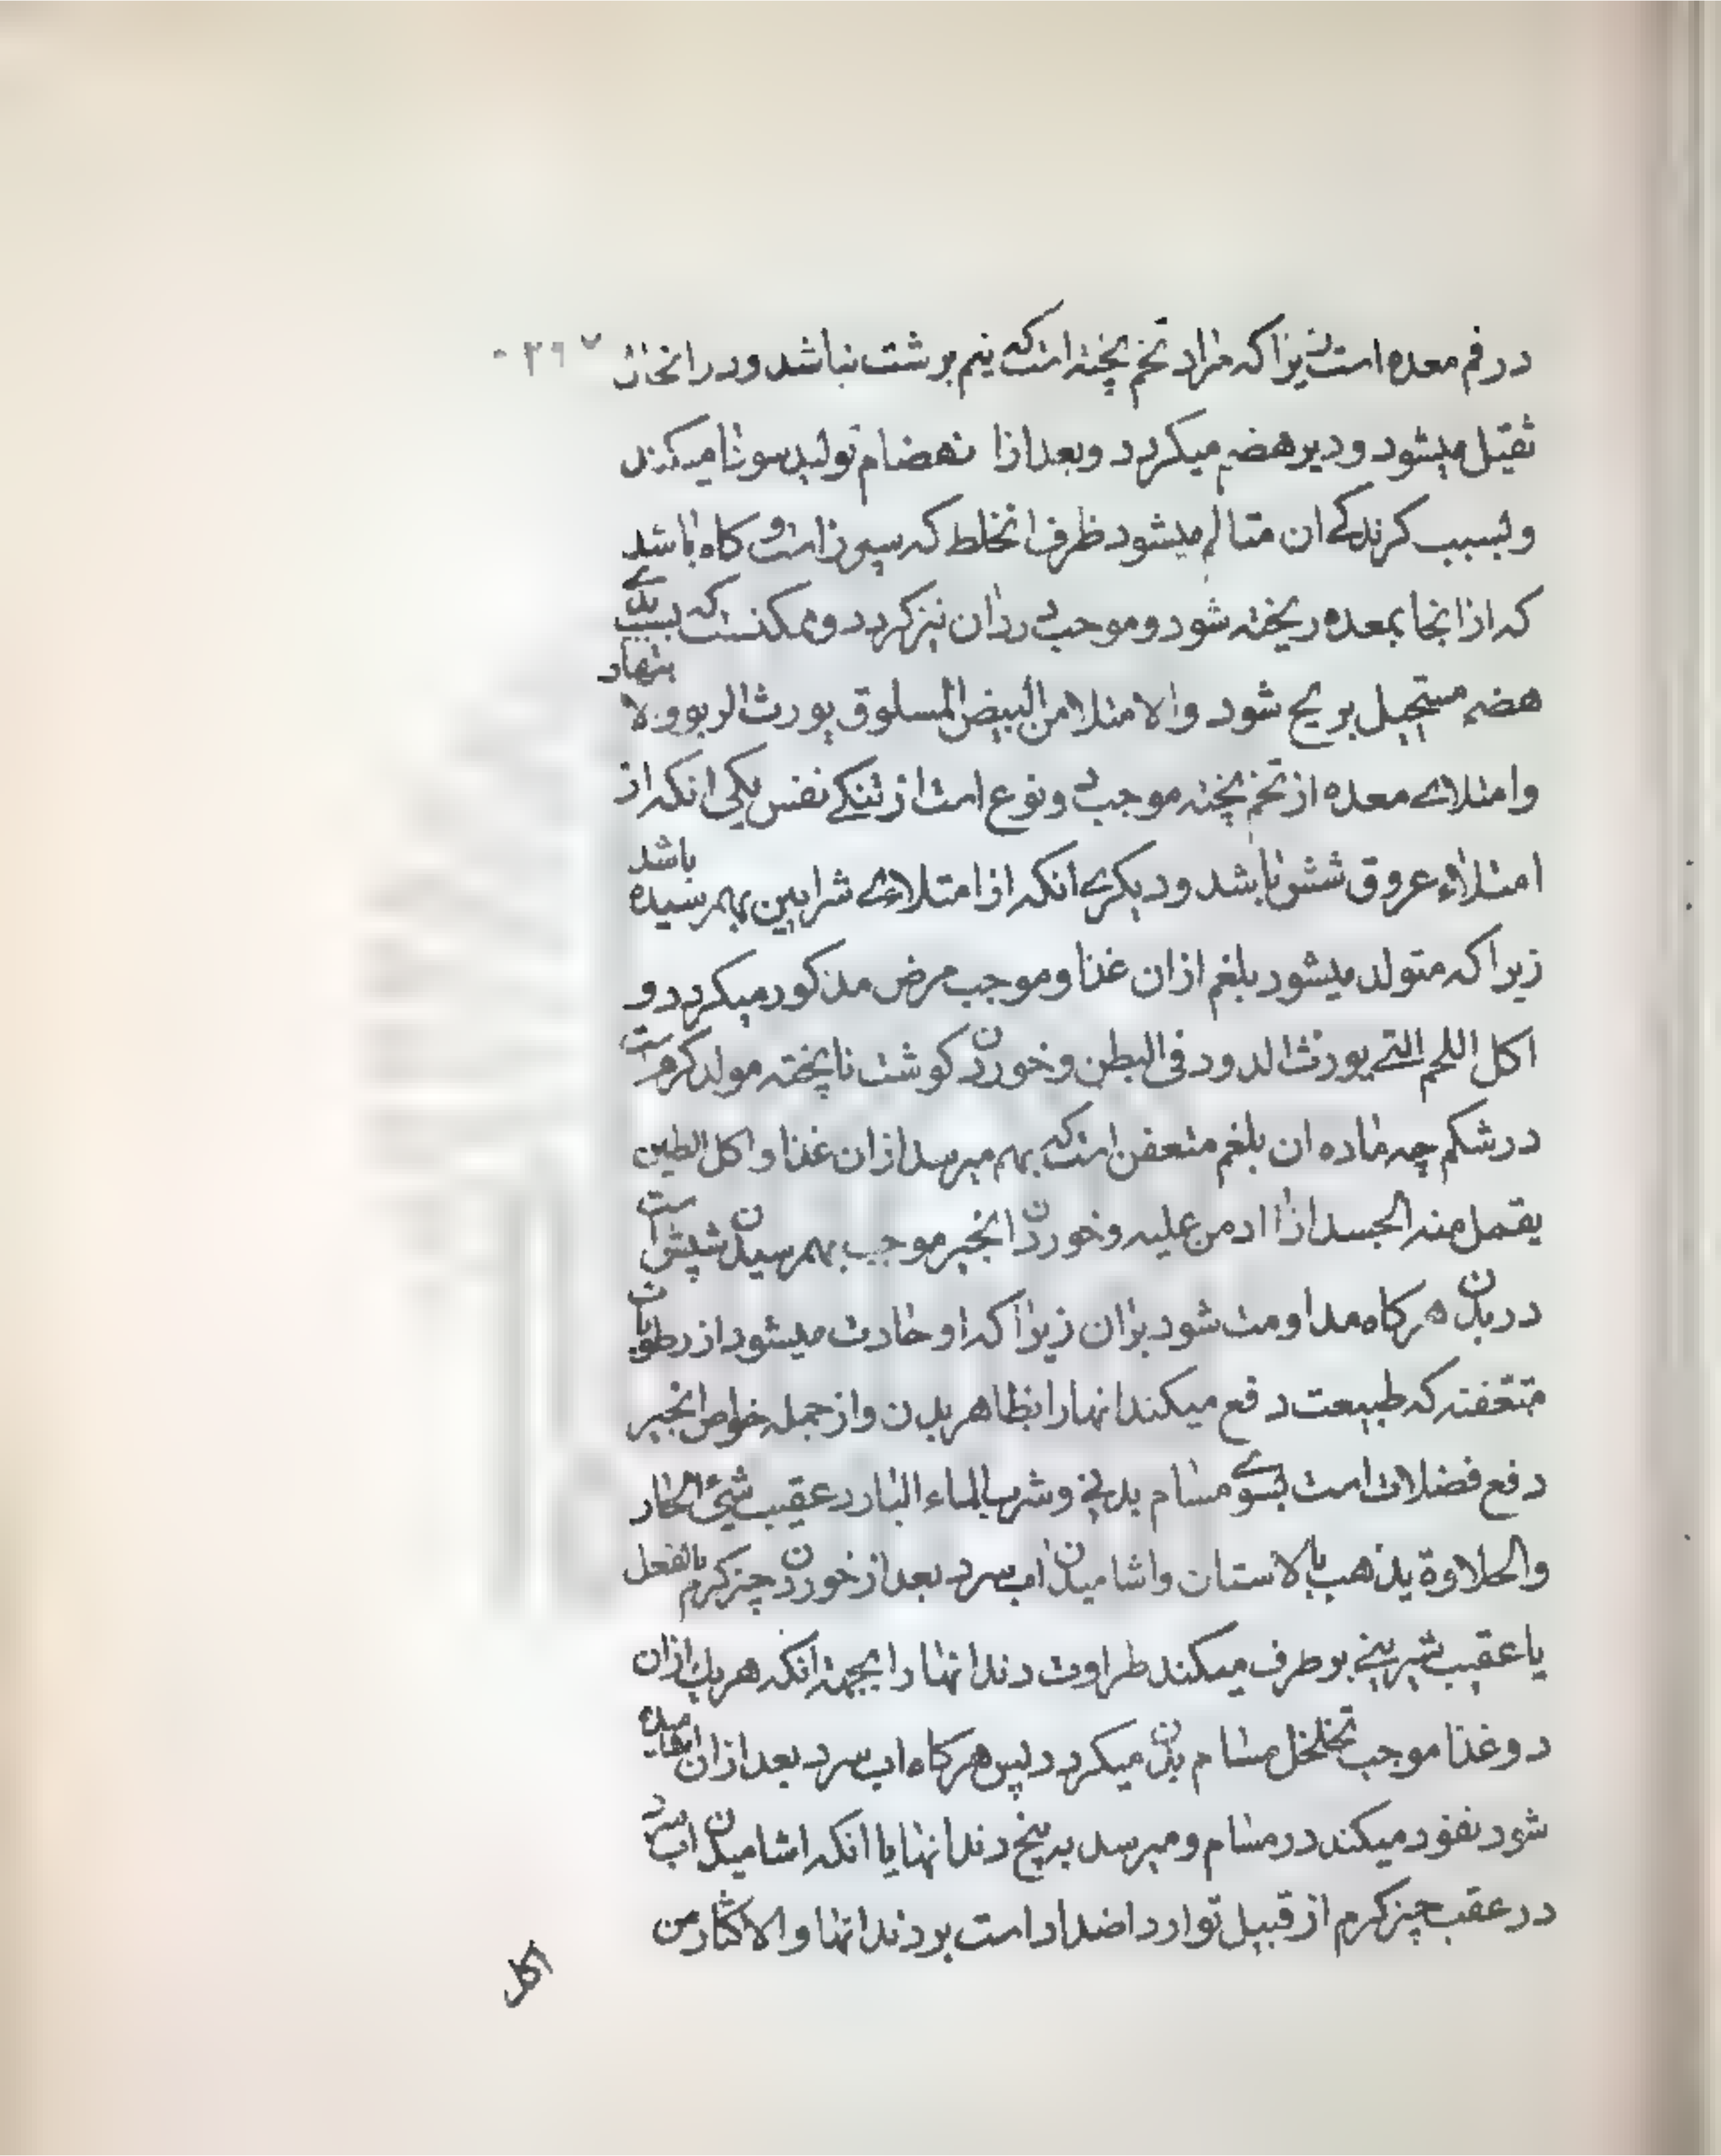 در فم معده است زیرا که مراد تخم پخته است که نیم برشت نباشد و در انحال
ثقیل میشود و دیر هضم میکردد و بعد از انهضام تولید سودا میکند
و بسبب کرندکے ان متالم میشود ظرف انخلط که سپرز است و کاه باشد
که از انجا بمعده ریخته شود و موجب درد ان نیز کردد و ممکنست که بسبب بدے
هضم مستحیل بریح شود والامتلا من البیض المسلوق یورث الربو والابتهار
و امتلاے معده از تخم پخته موجب دو نوع است از تنکے نفس یکی انکه از
امتلاء عروق شش باشد و دیکرے انکه از امتلاے شرایین بهم رسیده باشد
زیرا که متولد میشود بلغم از ان غذا و موجب مرض مذکور میکردد و
اکل اللحم النے یورث الدود فی البطن و خوردن کوشت ناپخته مولد کرم ست
در شکم چه ماده ان بلغم متعفن است که بهم میرسد از ان غذا و اکل الطین
یقمل منه الجسد اذا ادمن علیه و خوردن انجیر موجب بهم رسیدن شپش است
در بدن هرکاه مداومت شود بران زیرا که او حادث میشود از رطوبات
متعفنه که طبیعت دفع میکند انها را بظاهر بدن و از جمله خواص انجیر
دفع فضلات است بسوے مسام بدنے و شرب الماء البارد عقیب شیئ الحار
والحلاوة یذهب بالاسنان و اشامیدن اب سرد بعد از خوردن چیز کرم بالفعل
یا عقیب شیرینے بر طرف میکند طراوت دندانها را بجهة انکه هر یك از ان
دو غذا موجب تخلخل مسام بدن میکردد پس هرکاه اب سرد بعد از ان اشامیده
شود نفوذ میکند در مسام و میرسد به بیخ دندانها یا انکه اشامیدن اب سرد
در عقب چیز کرم از قبیل توارد اضداد است بر دندانها و الاکثار من
اکل